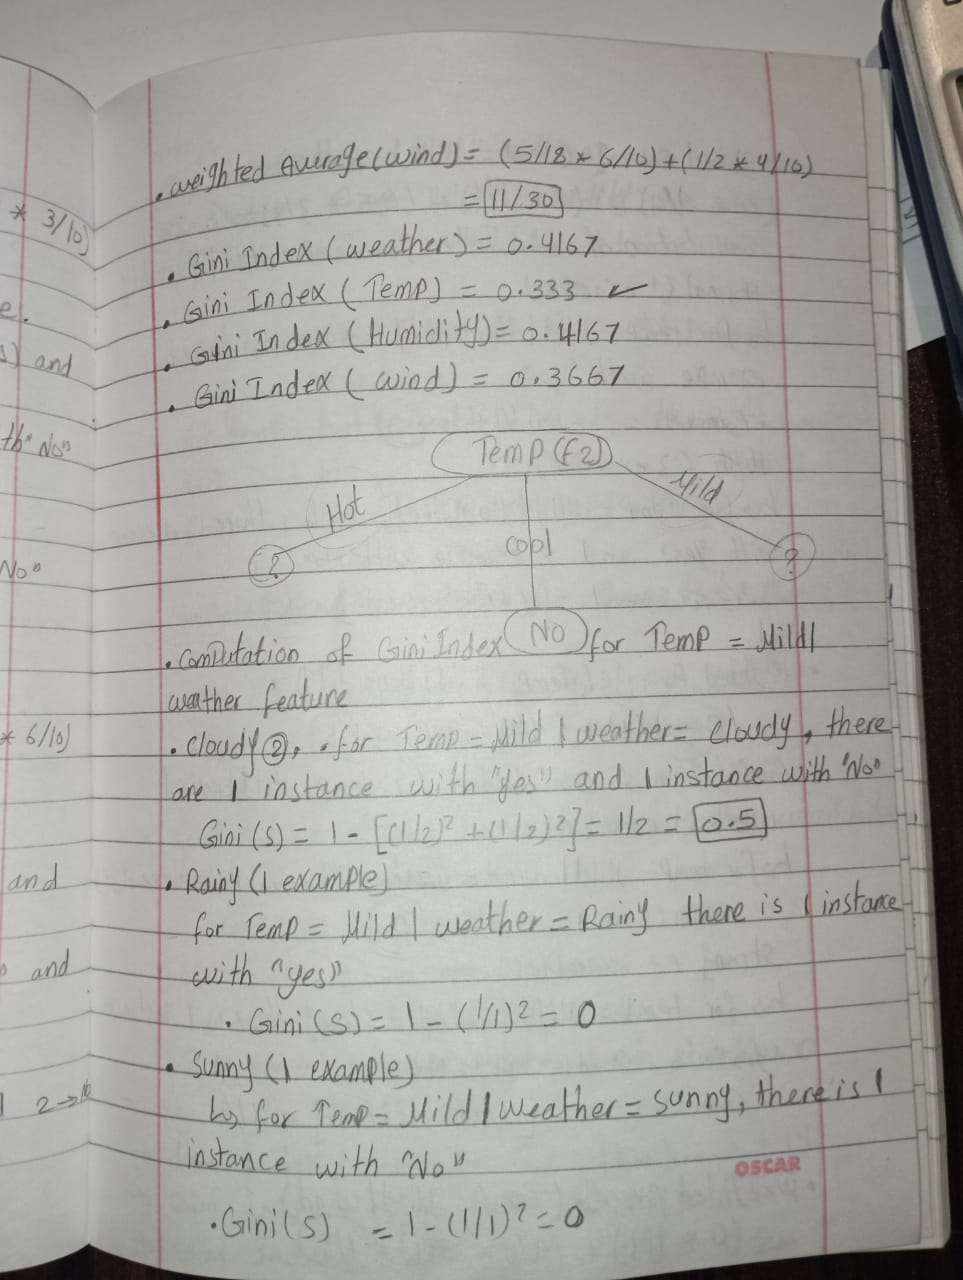 * 3/10)
e.
s) and
th "No"
No"
* 6/10)
and
and
2→
. weighted Average(wind) = (5/18 * 6/10) + (1/2 * 4/10)
= 11/30
. Gini Index (weather) = 0.4167
. Gini Index (Temp) = 0.333 ✓
. Gini Index (Humidity) = 0.4167
. Gini Index (wind) = 0.3667
Temp (F2)
Hot
cool
Mild
?
?
NO
. Computation of Gini Index for Temp = Mild |
weather feature
. Cloudy ②, . for Temp = Mild | weather = cloudy, there
are 1 instance with "yes" and 1 instance with "No"
Gini (S) = 1 - [(1/2)² + (1/2)²] = 1/2 = 0.5
. Rainy (1 example)
for Temp = Mild | weather = Rainy there is 1 instance
with "yes"
. Gini (S) = 1 - (1/1)² = 0
. Sunny (1 example)
↳ for Temp = Mild | weather = sunny, there is 1
instance with "No"
OSCAR
. Gini (S) = 1 - (1/1)² = 0